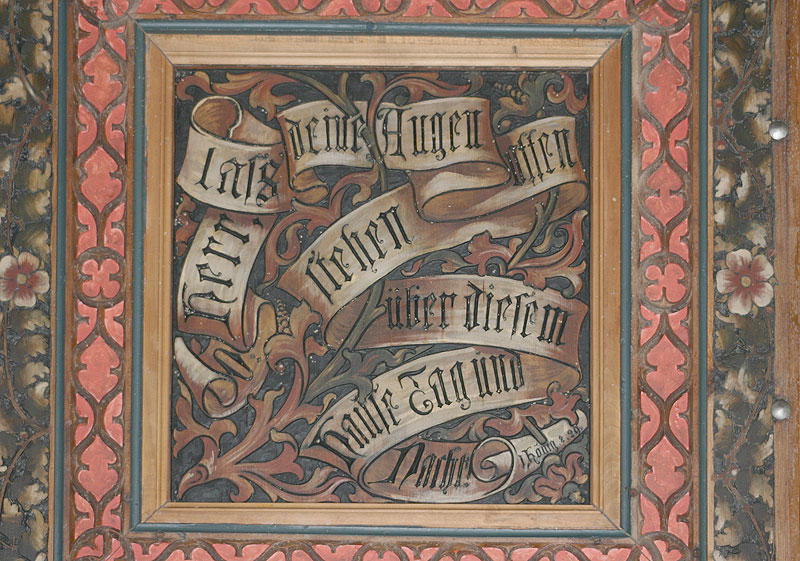 Herr,
lass
deine Augen
offen
stehen
über diesem
Hause Tag und
Nacht!
1 König. 8. 29.